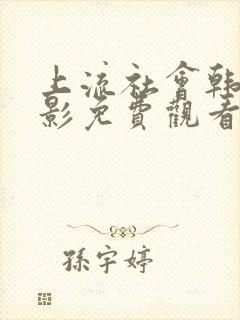 上流社會韓
影免費觀看
孫宇婷